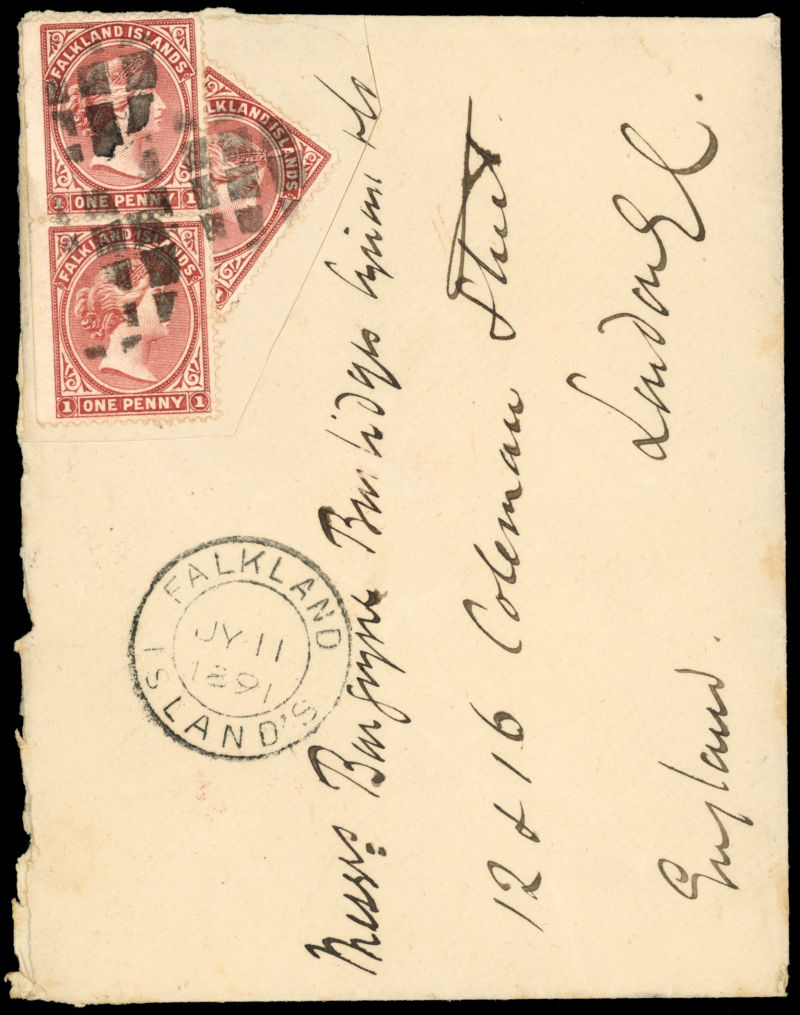 FALKLAND ISLANDS
1 ONE PENNY 1
FALKLAND ISLANDS
1 ONE PENNY 1
FALKLAND ISLANDS
1
FALKLAND
ISLAND'S
JY 11
1891
Messrs Burgoyne Burbidges
12 & 16 Coleman Street
London EC.
England.